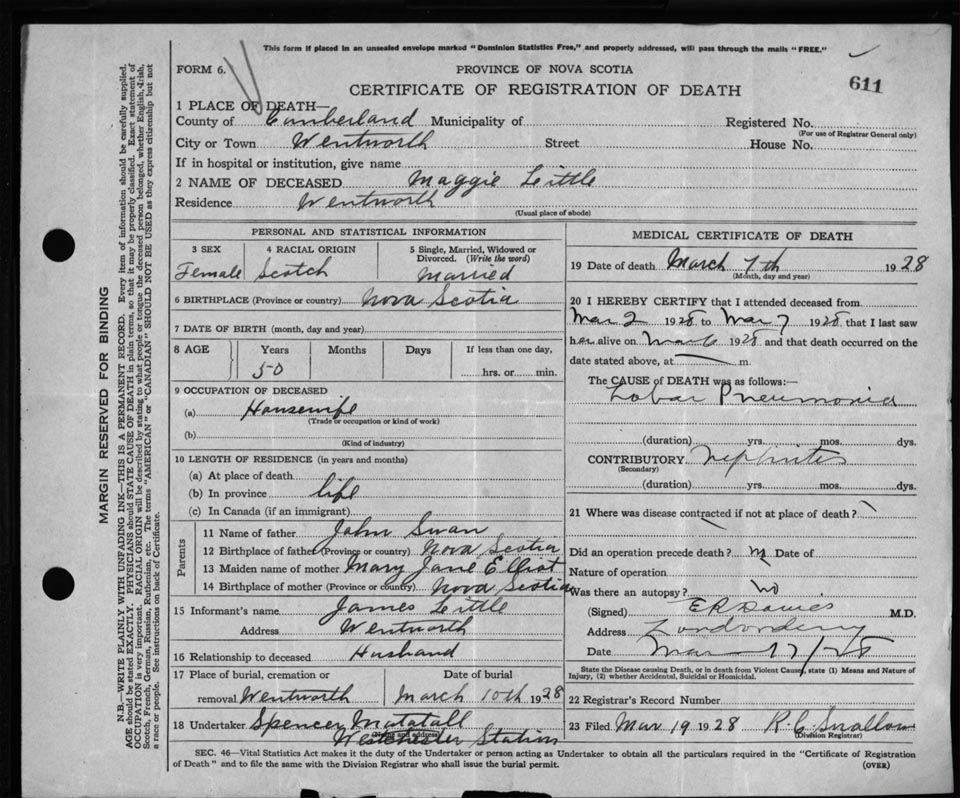 This form if placed in an unsealed envelope marked "Dominion Statistics Free," and properly addressed, will pass through the mails "FREE."
FORM 6.
PROVINCE OF NOVA SCOTIA
CERTIFICATE OF REGISTRATION OF DEATH
611
1 PLACE OF DEATH—
County of Cumberland Municipality of Registered No.
(For use of Registrar General only)
City or Town Wentworth Street House No.
If in hospital or institution, give name
2 NAME OF DECEASED Maggie Little
Residence Wentworth
(Usual place of abode)
PERSONAL AND STATISTICAL INFORMATION
3 SEX 4 RACIAL ORIGIN 5 Single, Married, Widowed or Divorced. (Write the word)
Female Scotch Married
6 BIRTHPLACE (Province or country) Nova Scotia
7 DATE OF BIRTH (month, day and year)
8 AGE Years Months Days If less than one day,
50 hrs. or min.
9 OCCUPATION OF DECEASED
(a) Housewife
(Trade or occupation or kind of work)
(b)
(Kind of industry)
10 LENGTH OF RESIDENCE (in years and months)
(a) At place of death
(b) In province life
(c) In Canada (if an immigrant)
Parents
11 Name of father John Swan
12 Birthplace of father (Province or country) Nova Scotia
13 Maiden name of mother Mary Jane Elliot
14 Birthplace of mother (Province or country) Nova Scotia
15 Informant's name James Little
Address Wentworth
16 Relationship to deceased Husband
17 Place of burial, cremation or Date of burial
removal Wentworth March 10th 1928
18 Undertaker Spencer Matatall
(Name and address)
Westchester Station
MEDICAL CERTIFICATE OF DEATH
19 Date of death March 7th 1928
(Month, day and year)
20 I HEREBY CERTIFY that I attended deceased from
Mar 2 1928 to Mar 7 1928 that I last saw
her alive on Mar 6 1928 and that death occurred on the
date stated above, at m.
The CAUSE of DEATH was as follows:—
Lobar Pneumonia
(duration) yrs. mos. dys.
CONTRIBUTORY Nephritis
(Secondary)
(duration) yrs. mos. dys.
21 Where was disease contracted if not at place of death?
Did an operation precede death? Date of
Nature of operation
Was there an autopsy? No
(Signed) M.D.
Address Londonderry
Date Mar 17/28
State the Disease causing Death, or in death from Violent Causes, state (1) Means and Nature of
Injury, (2) whether Accidental, Suicidal or Homicidal.
22 Registrar's Record Number
23 Filed Mar 19 1928 R. C. Swallow
(Division Registrar)
SEC. 46—Vital Statistics Act makes it the duty of the Undertaker or person acting as Undertaker to obtain all the particulars required in the "Certificate of Registration
of Death" and to file the same with the Division Registrar who shall issue the burial permit.
(OVER)
MARGIN RESERVED FOR BINDING
N.B.—WRITE PLAINLY WITH UNFADING INK—THIS IS A PERMANENT RECORD. Every item of information should be carefully supplied.
AGE should be stated EXACTLY. PHYSICIANS should STATE CAUSE OF DEATH in plain terms, so that it may be properly classified. Exact statement of
OCCUPATION is very important. RACIAL ORIGIN will be described by stating to what people or tongue the deceased person belonged, whether English, Irish,
Scotch, French, German, Russian, Ruthenian, etc. The terms "AMERICAN" or "CANADIAN" SHOULD NOT BE USED as they express citizenship but not
a race or people. See instructions on back of Certificate.